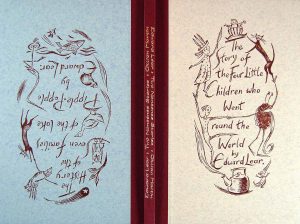 The
History
of the
Seven families
of the Lake
Pipple-Popple
by
Edward Lear.
Edward Lear
Nonsense Stories
The
Story of
the four Little
Children who
Went
round the
World
by Edward Lear.